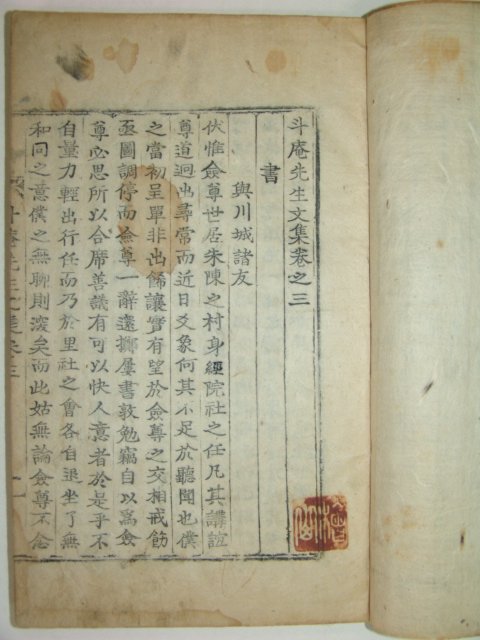 斗庵先生文集卷之三
書
與川城諸友
伏惟僉尊世居朱陳之村身經院社之任凡其講誼
尊道迥出尋常而近日爻象何其不足於聽聞也僕
之當初呈單非出餙讓實有望於僉尊之交相戒飭
亟圖調停而僉尊一辭遠擲屢書敦勉竊自以爲僉
尊必思所以合席善議有可以快人意者於是乎不
自量力輕出行任而乃於里社之會各自退坐了無
和同之意僕之無聊則深矣而此姑無論僉尊不念
斗庵先生文集卷三
一